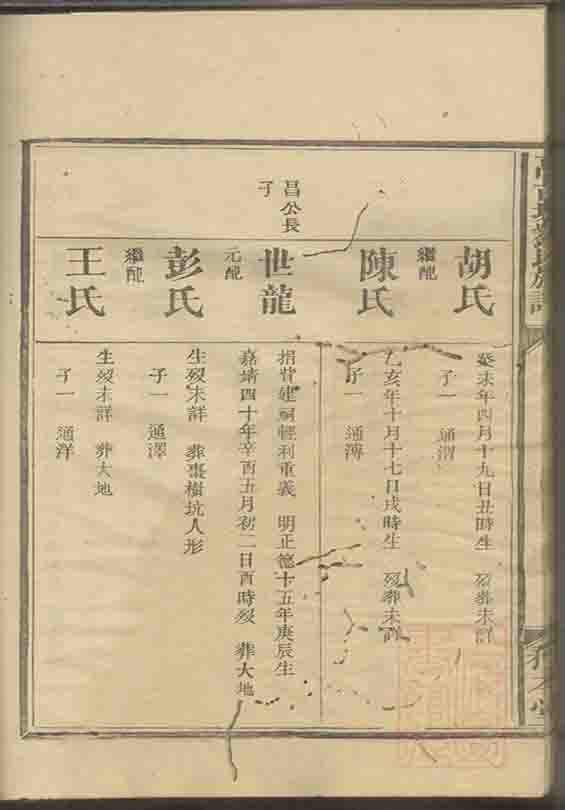 胡氏
癸未年四月十九日丑時生 歿葬未詳
子一 通渭
繼配
陳氏
乙亥年十月十七日戌時生 歿葬未詳
子一 通溥
昌公長
子
世龍
捐貲建祠輕利重義 明正德十五年庚辰生
嘉靖四十年辛酉五月初二日酉時歿 葬大地
元配
彭氏
生歿未詳 葬棗樹坑人形
子一 通澤
繼配
王氏
生歿未詳 葬大地
子一 通洋